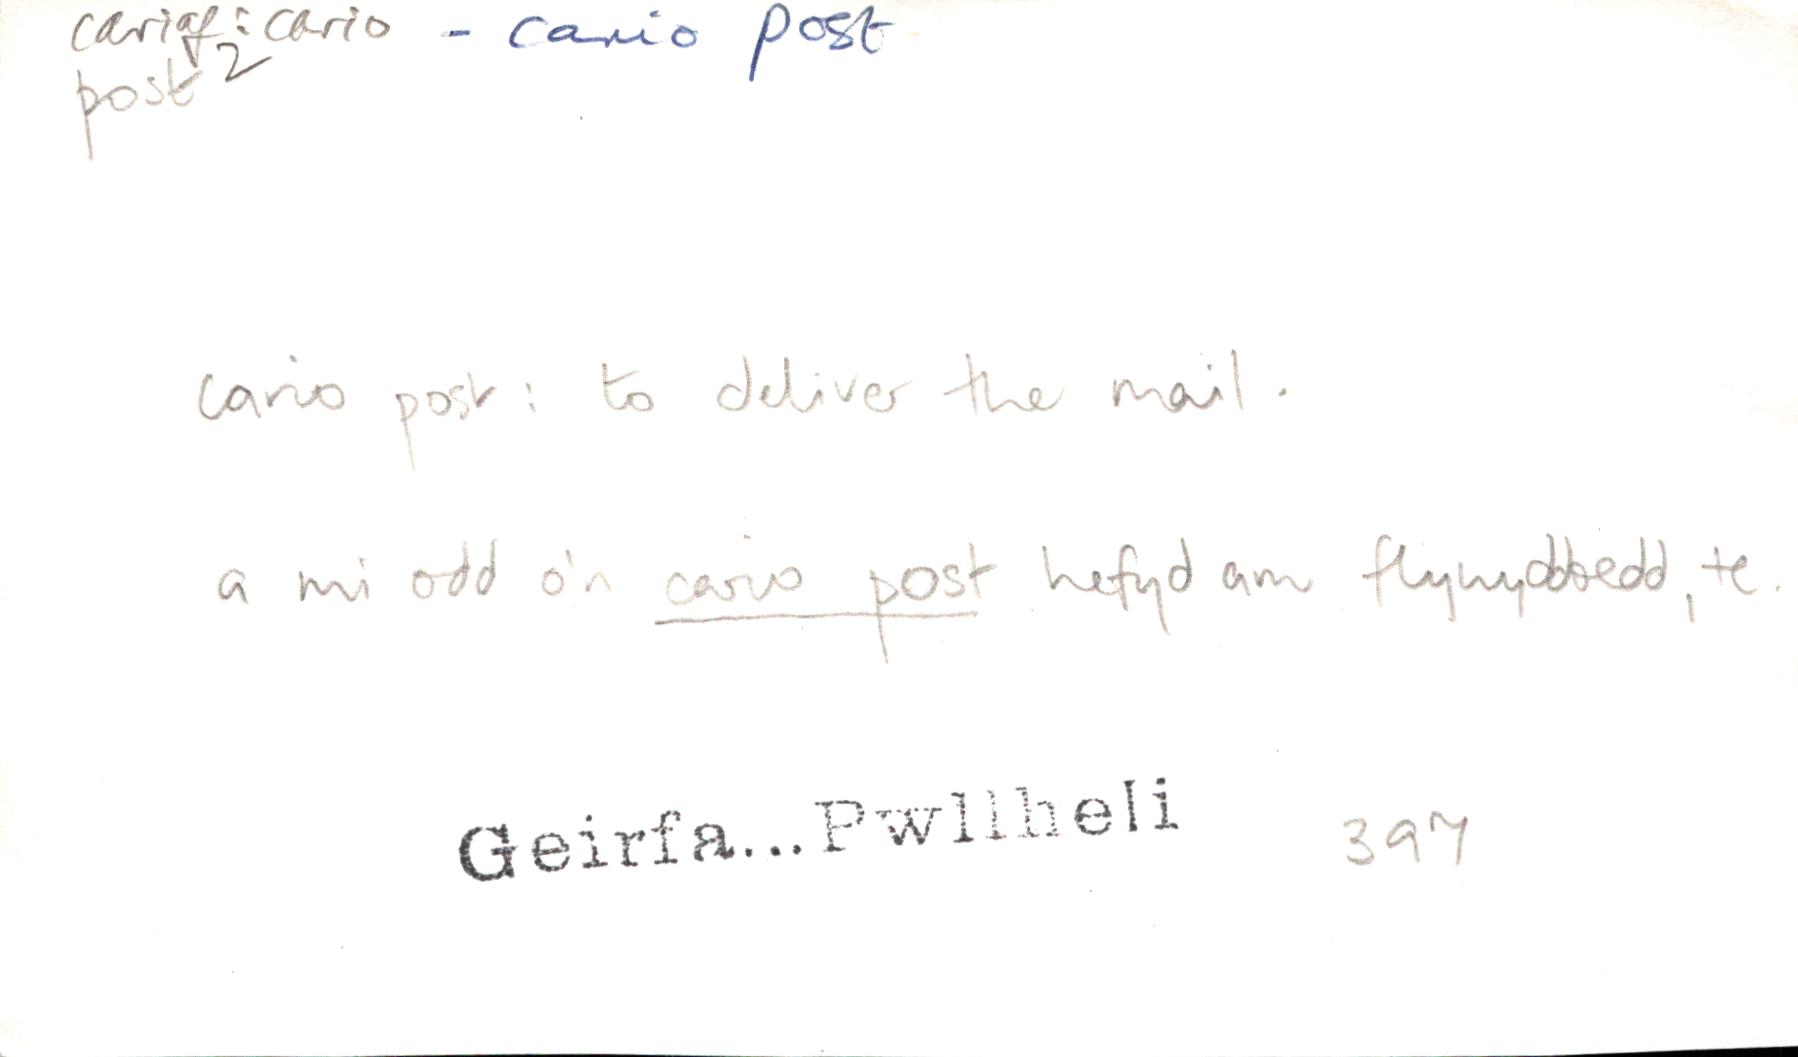 cariaf: cario - cario post
post 2
cario post: to deliver the mail.
a mi odd o'n cario post hefyd am flynyddoedd, te.
Geirfa...Pwllheli 397